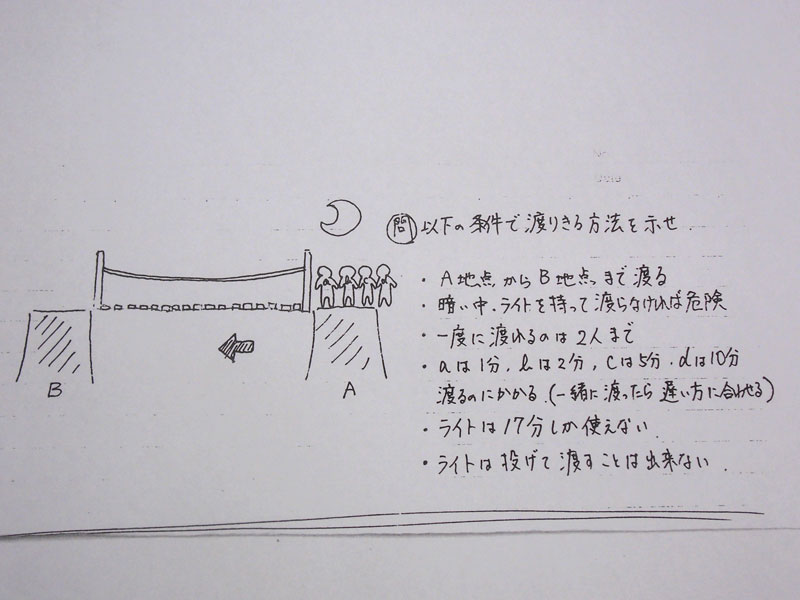 問 以下の条件で渡りきる方法を示せ
・A地点からB地点まで渡る
・暗い中、ライトを持って渡らなければ危険
・一度に渡れるのは2人まで
・aは1分、bは2分、cは5分、dは10分
渡るのにかかる。(一緒に渡ったら遅い方に合わせる)
・ライトは17分しか使えない
・ライトは投げて渡すことは出来ない
B
A